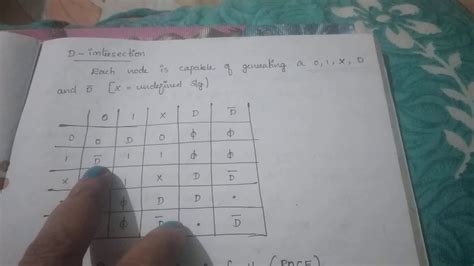 D - intersection
Each node is capable of generating a 0, 1, X, D
and D̅ [X = undefined sig)
0 1 X D D̅
0 0 D 0 ϕ ϕ
1 D̅ 1 1 ϕ ϕ
X 1 X D D̅
ϕ D D •
ϕ D̅ • D̅